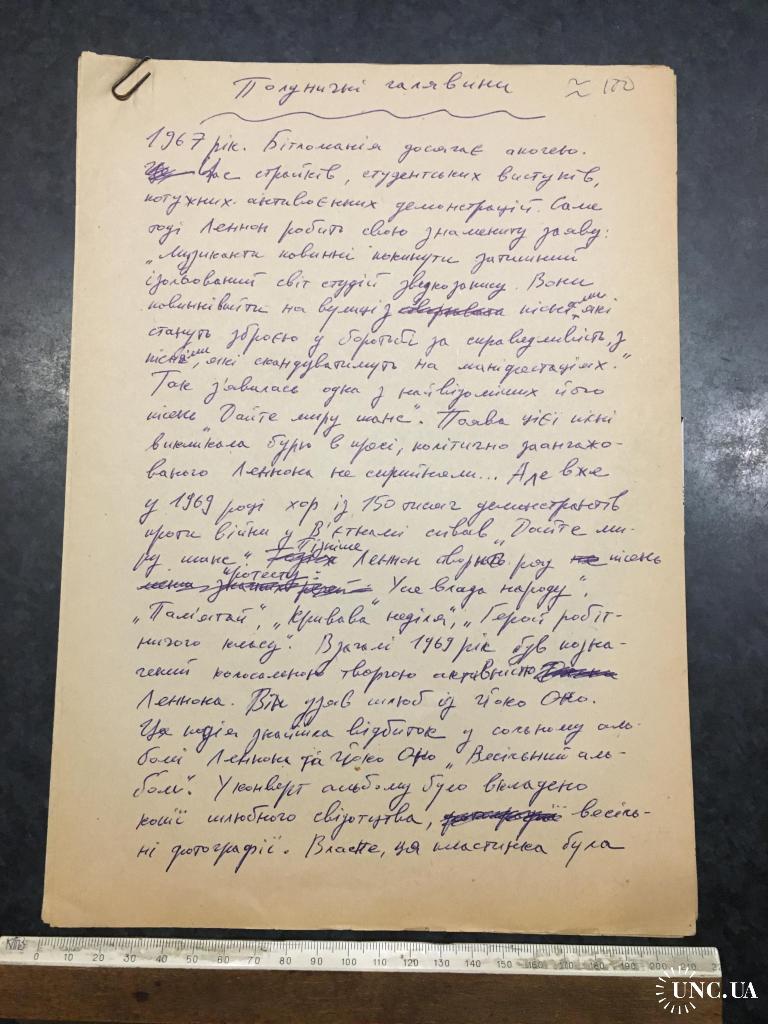 Полуничні галявини ≈ 100
1967 рік. Бітломанія досягає апогею.
Час страйків, студентських виступів,
потужних антивоєнних демонстрацій. Саме
тоді Леннон робить свою знамениту заяву:
„Музиканти повинні покинути затишний
ізольований світ студій звукозапису. Вони
повинні вийти на вулиці з піснями, які
стануть зброєю у боротьбі за справедливість, з
піснями, які скандуватимуть на маніфестаціях."
Так з'явилась одна з найвідоміших його
пісень „Дайте миру шанс". Поява цієї пісні
викликала бурю в пресі, політично заангажо-
ваного Леннона не сприйняли... Але вже
у 1969 році хор із 150 тисяч демонстрантів
проти війни у В'єтнамі співав „Дайте ми-
ру шанс". Пізніше Леннон творить ряд пісень
протесту: „Уся влада народу",
„Пам'ятай", „Кривава неділя", „Герой робіт-
ничого класу". Взагалі 1969 рік був позна-
чений колосальною творчою активністю
Леннона. Він узяв шлюб із Йоко Оно.
Ця подія знайшла відбиток у сольному аль-
бомі Леннона та Йоко Оно „Весільний аль-
бом". У конверт альбому було вкладено
копії шлюбного свідотцтва, весіль-
ні фотографії. Власне, ця пластинка була
0 10 20 30 40 50 60 70 80 90 100 110 120 130 140 150 160 170 180 190 200 210
UNC.UA